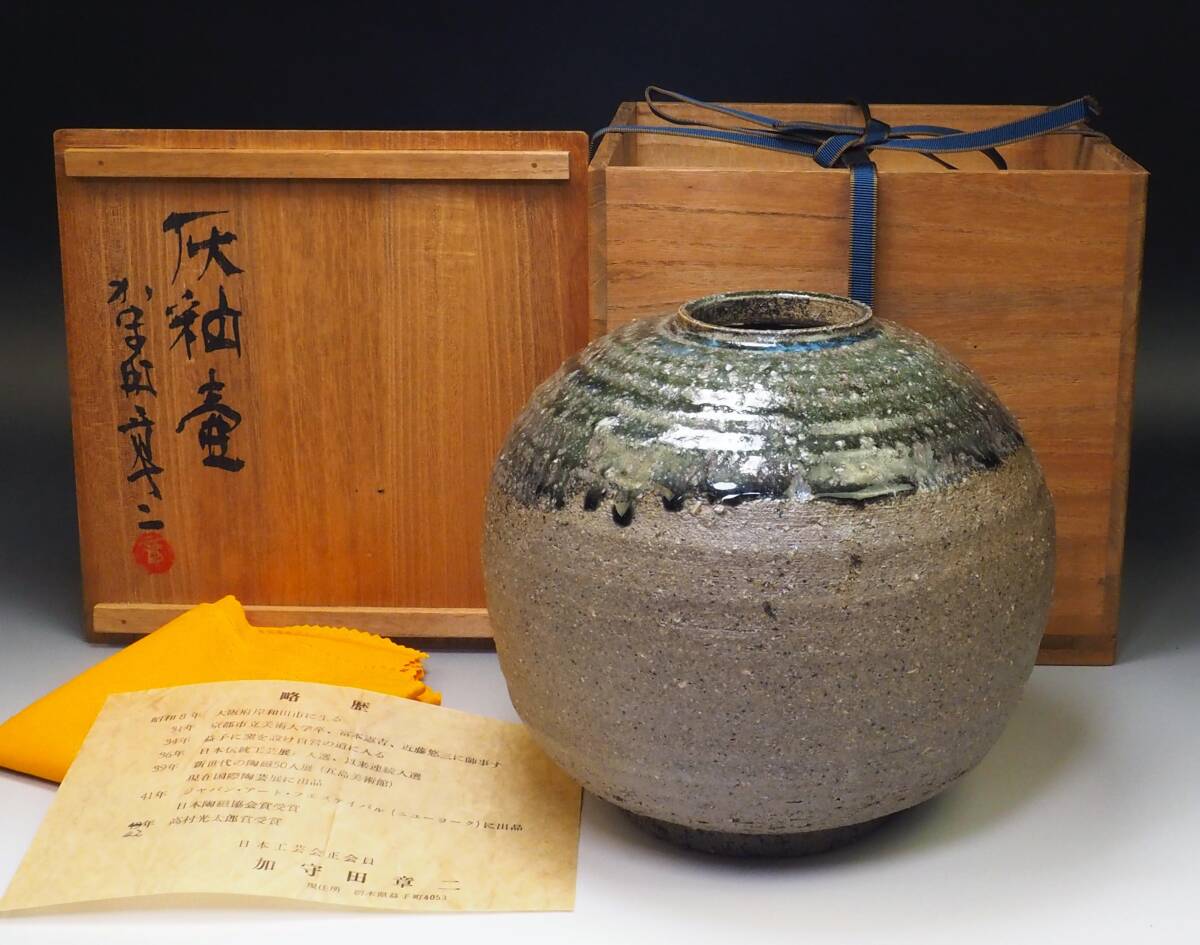 灰釉壷
加守田章二
略歴
昭和8年 大阪府岸和田市に生る
31年 京都市立美術大学卒、富本憲吉、近藤悠三に師事す
34年 益子に窯を設け自営の道に入る
36年 日本伝統工芸展」入選、以来連続入選
39年 新世代の陶磁50人展(五島美術館)
現在国際陶芸展に出品
41年 ジャパン・アート・フェスティバル(ニューヨーク)に出品
日本陶磁協会賞受賞
42年 高村光太郎賞受賞
日本工芸会正会員
加守田章二
現住所 栃木県益子町4053